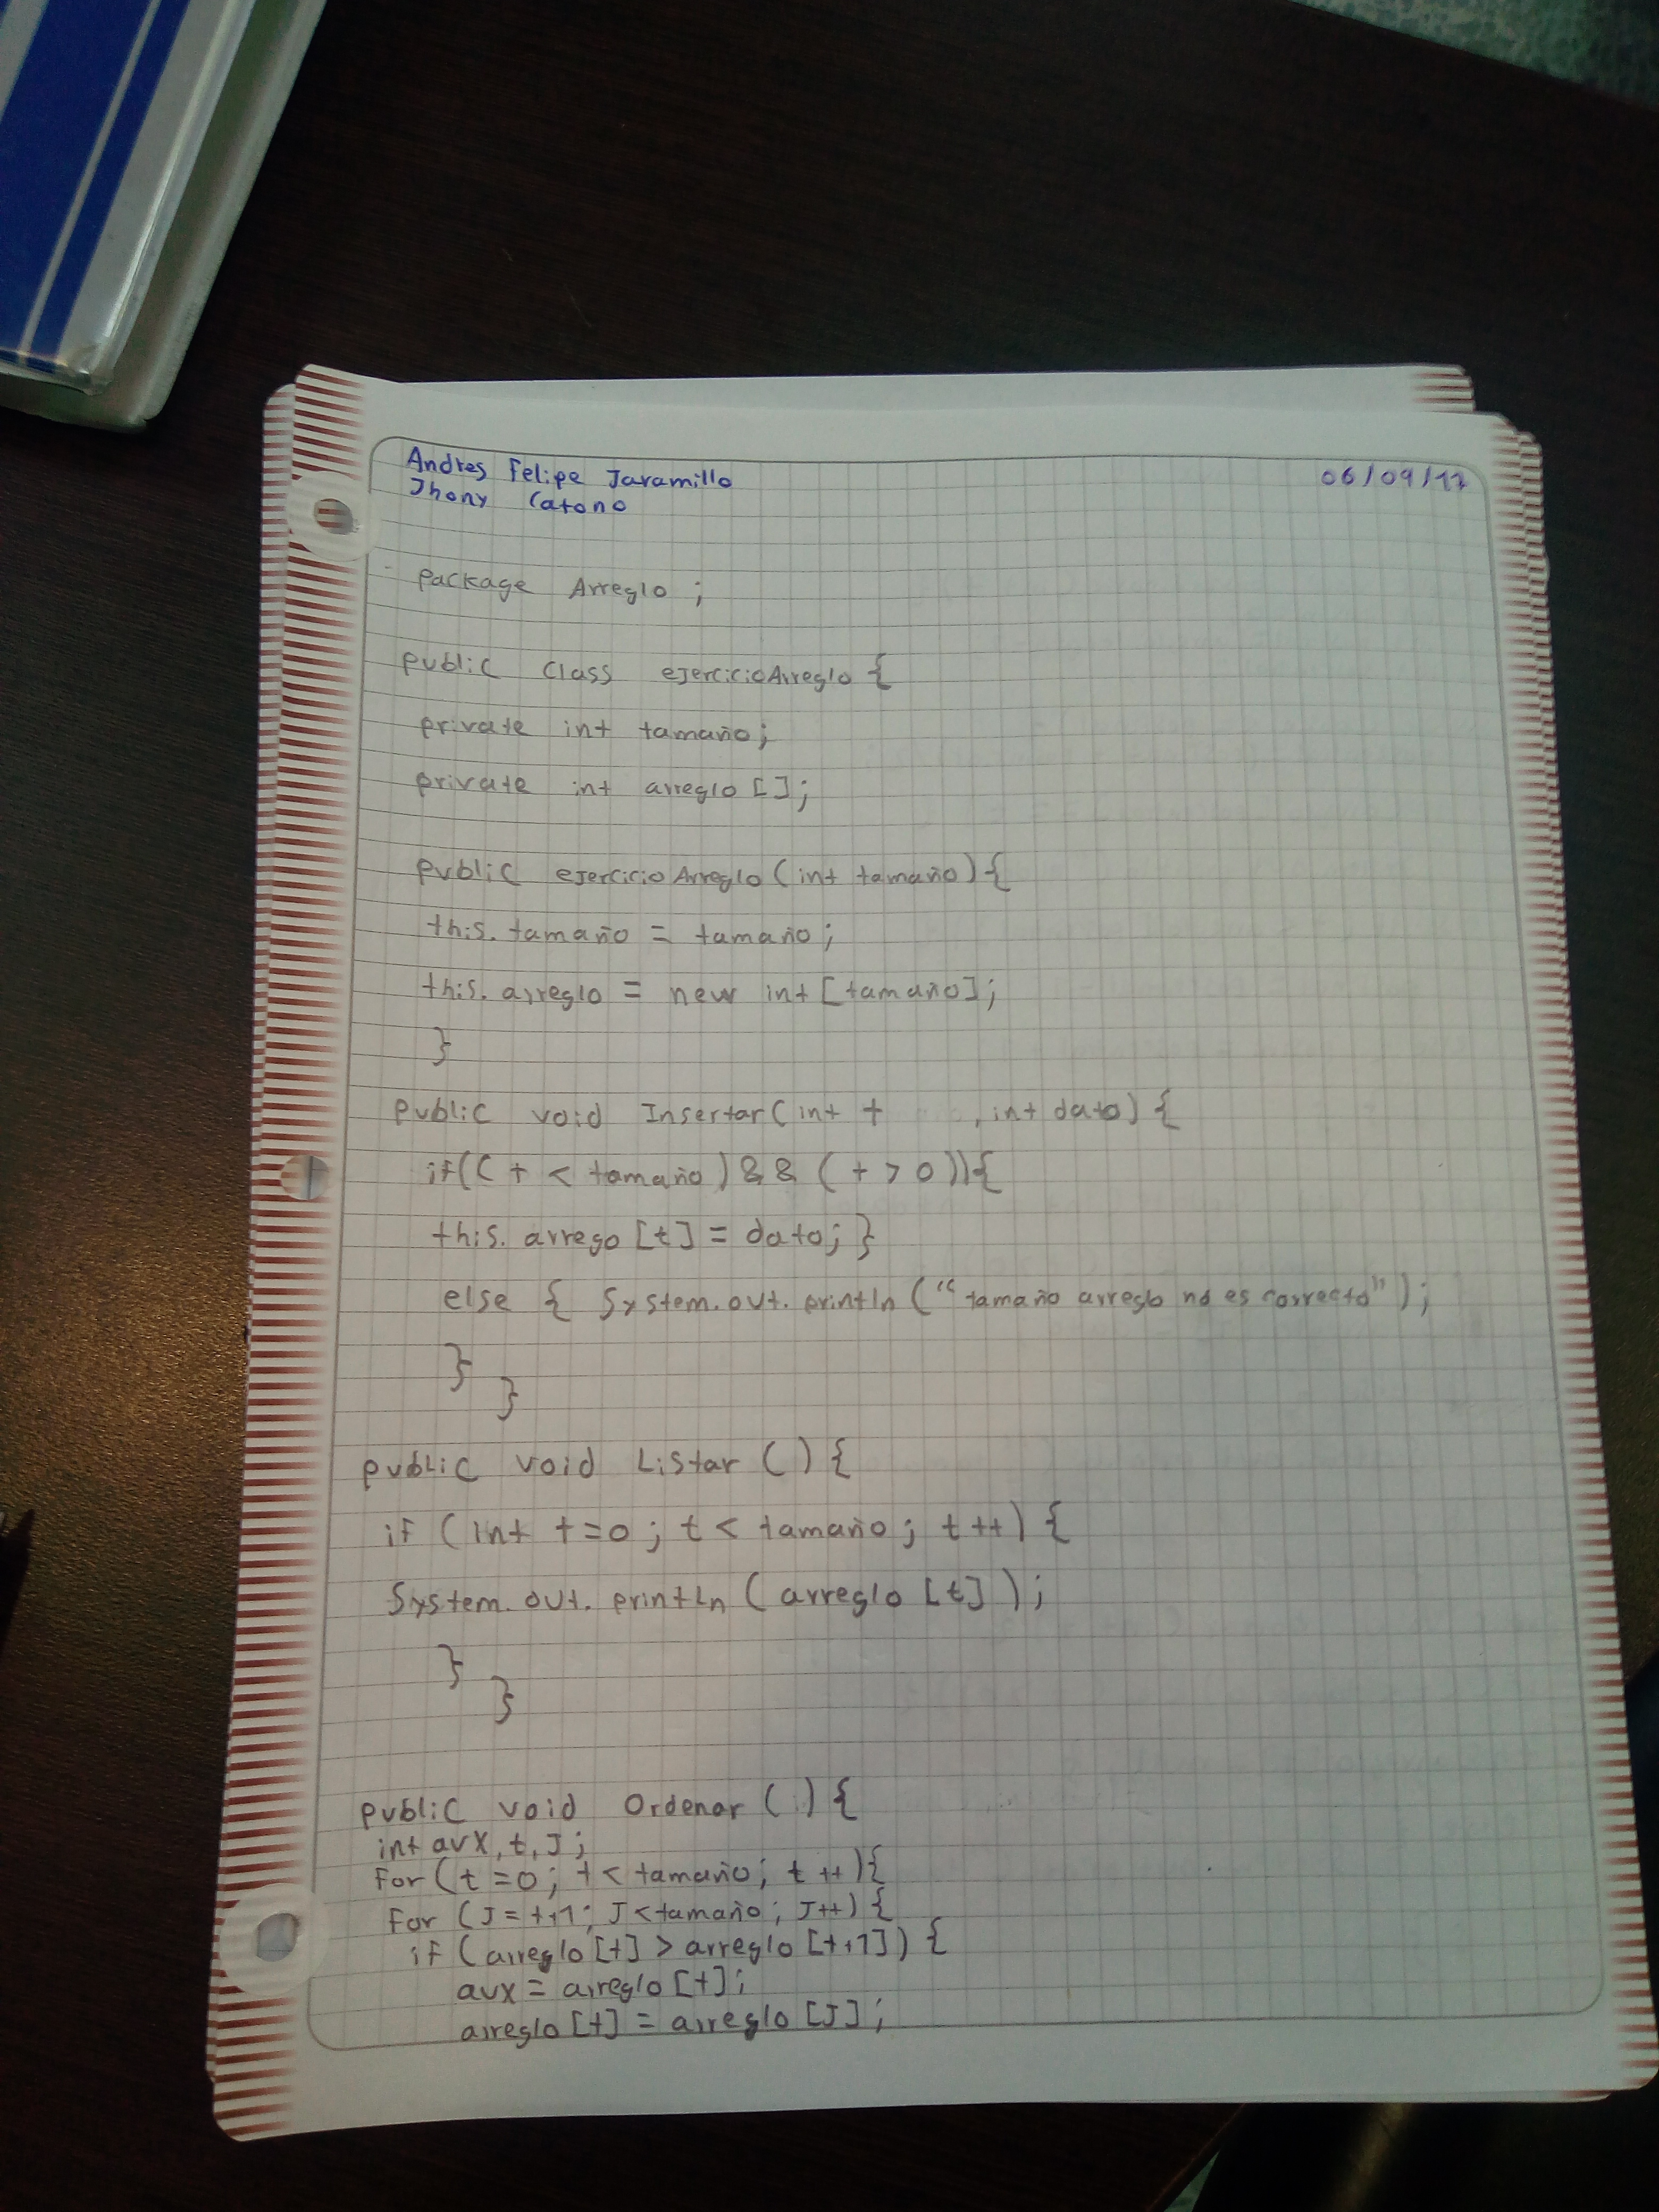 Andres Felipe Jaramillo
06/09/17
Jhony Catono
package Arreglo ;
public class ejercicioArreglo {
private int tamaño;
private int arreglo [];
public ejercicioArreglo (int tamaño) {
this. tamaño = tamaño;
this. arreglo = new int [tamaño];
}
public void Insertar (int t , int dato) {
if(( t < tamaño ) && ( t > 0 )){
this. arrego [t] = dato; }
else { System. out. println ("tamaño arreglo no es correcto");
}
}
public void Listar () {
if (int t=0 ; t < tamaño ; t ++) {
System. out. println ( arreglo [t] );
}
}
public void Ordenar () {
int aux, t, J ;
For (t =0 ; t < tamaño; t ++){
For (J = t+1; J < tamaño; J++) {
if (arreglo [t] > arreglo [t+1]) {
aux = arreglo [t];
arreglo [t] = arreglo [J];